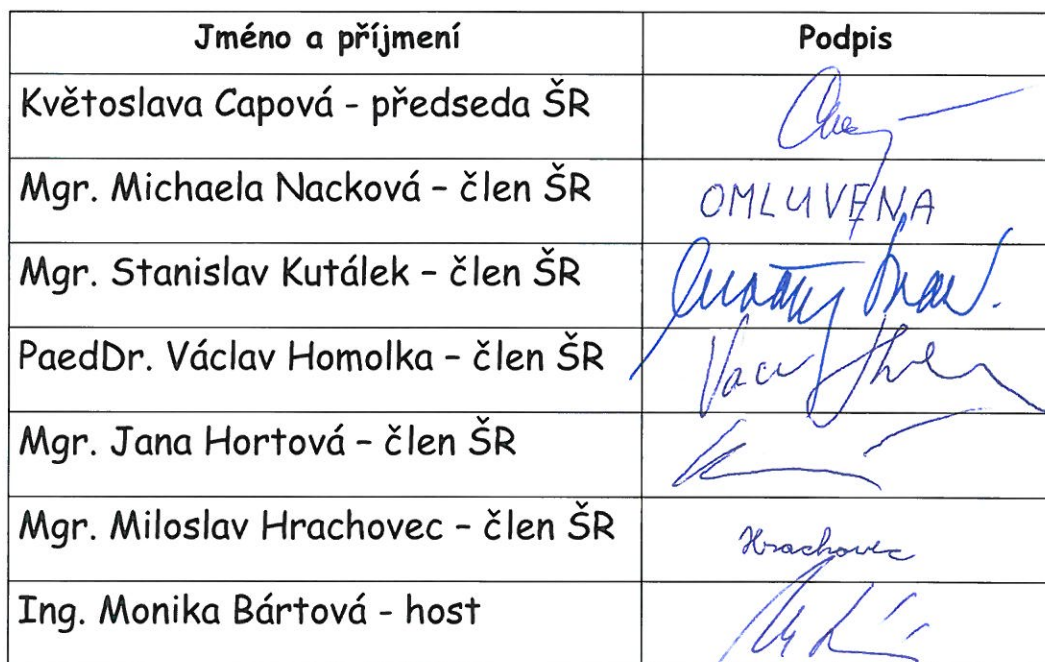 Jméno a příjmení Podpis
Květoslava Capová - předseda ŠR
Mgr. Michaela Nacková – člen ŠR OMLUVENA
Mgr. Stanislav Kutálek – člen ŠR
PaedDr. Václav Homolka – člen ŠR
Mgr. Jana Hortová – člen ŠR
Mgr. Miloslav Hrachovec – člen ŠR Hrachovec
Ing. Monika Bártová - host